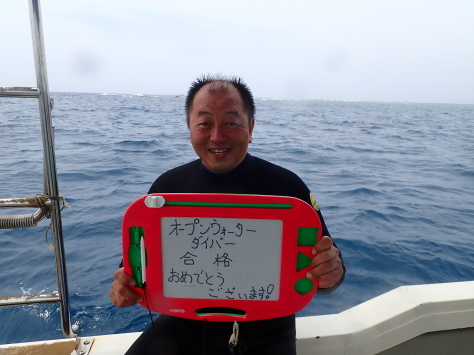 オープンウォーター
ダイバー
合格
おめでとう
ございます!